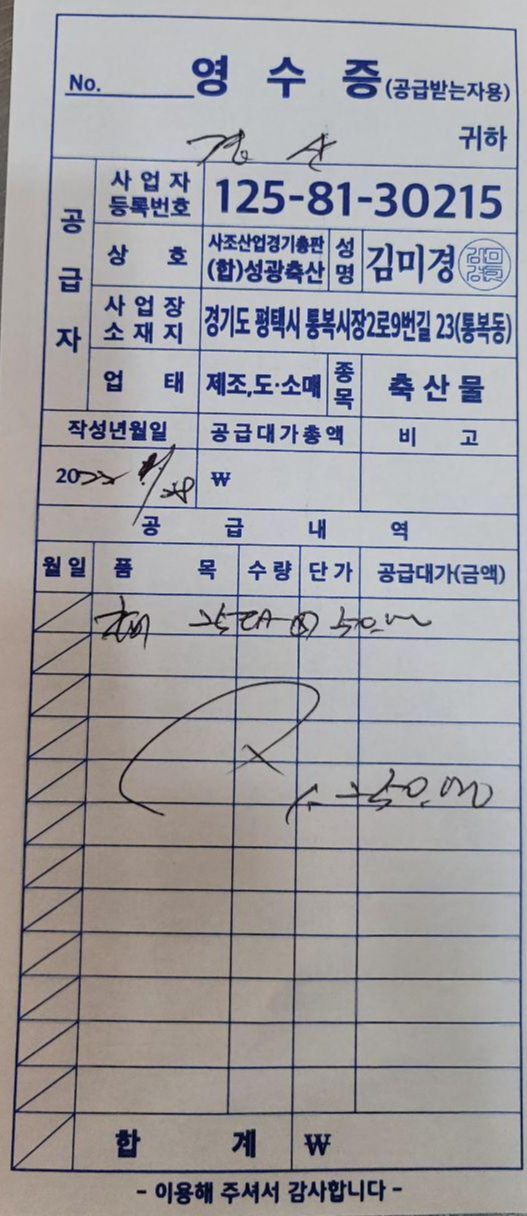 No. 영 수 증 (공급받는자용)
귀하
공급자
사업자등록번호 125-81-30215
상호 사조산업경기총판 (합)성광축산 성명 김미경
사업장소재지 경기도 평택시 통복시장2로9번길 23(통복동)
업태 제조,도·소매 종목 축산물
작성년월일 공급대가총액 비고
20 ₩
공 급 내 역
월일 품목 수량 단가 공급대가(금액)
합 계 ₩
- 이용해 주셔서 감사합니다 -